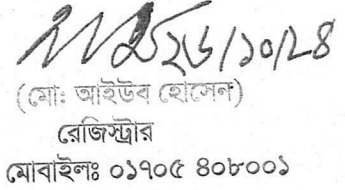 ২৬/১০/২৪
(মো: আইউব হোসেন)
রেজিস্ট্রার
মোবাইলঃ ০১৭০৫ ৪০৮০০১